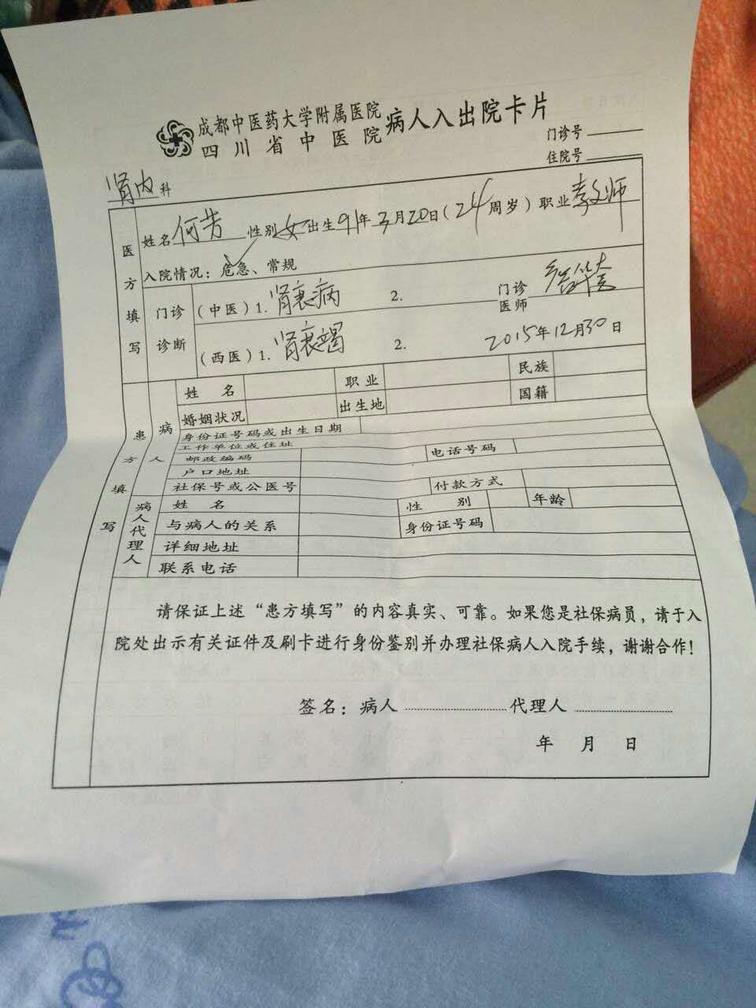 成都中医药大学附属医院
四川省中医院
病人入出院卡片
门诊号
住院号
肾内科
医方填写
姓名 何芳 性别 女 出生 91年3月20日(24周岁) 职业 教师
入院情况：危急、常规
门诊诊断
(中医) 1. 肾衰病 2.
门诊医师
(西医) 1. 肾衰竭 2.
2015年12月30日
患方填写
病人
姓名 职业 民族
婚姻状况 出生地 国籍
身份证号码或出生日期
工作单位或住址
邮政编码 电话号码
户口地址
社保号或公医号 付款方式
病人代理人
姓名 性别 年龄
与病人的关系 身份证号码
详细地址
联系电话
请保证上述“患方填写”的内容真实、可靠。如果您是社保病员，请于入
院处出示有关证件及刷卡进行身份鉴别并办理社保病人入院手续，谢谢合作！
签名：病人 代理人
年 月 日